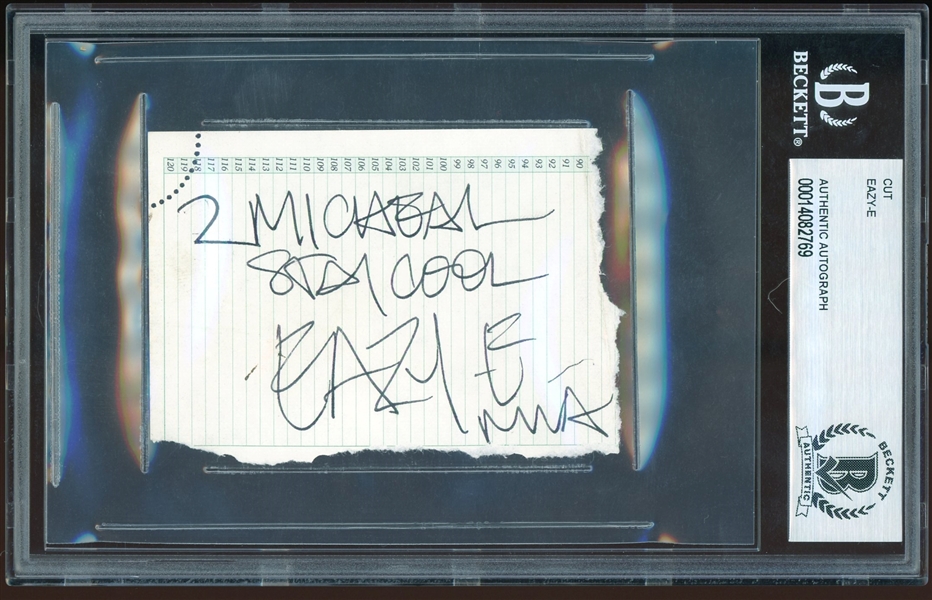 120 119 118 117 116 115 114 113 112 111 110 109 108 107 106 105 104 103 102 101 100 99 98 97 96 95 94 93 92 91 90
2 MICKEAL
STAY COOL
EAZY E
NWA
BECKETT®
B
CUT
EAZY-E
AUTHENTIC AUTOGRAPH
00014082769
BECKETT
B
AUTHENTIC